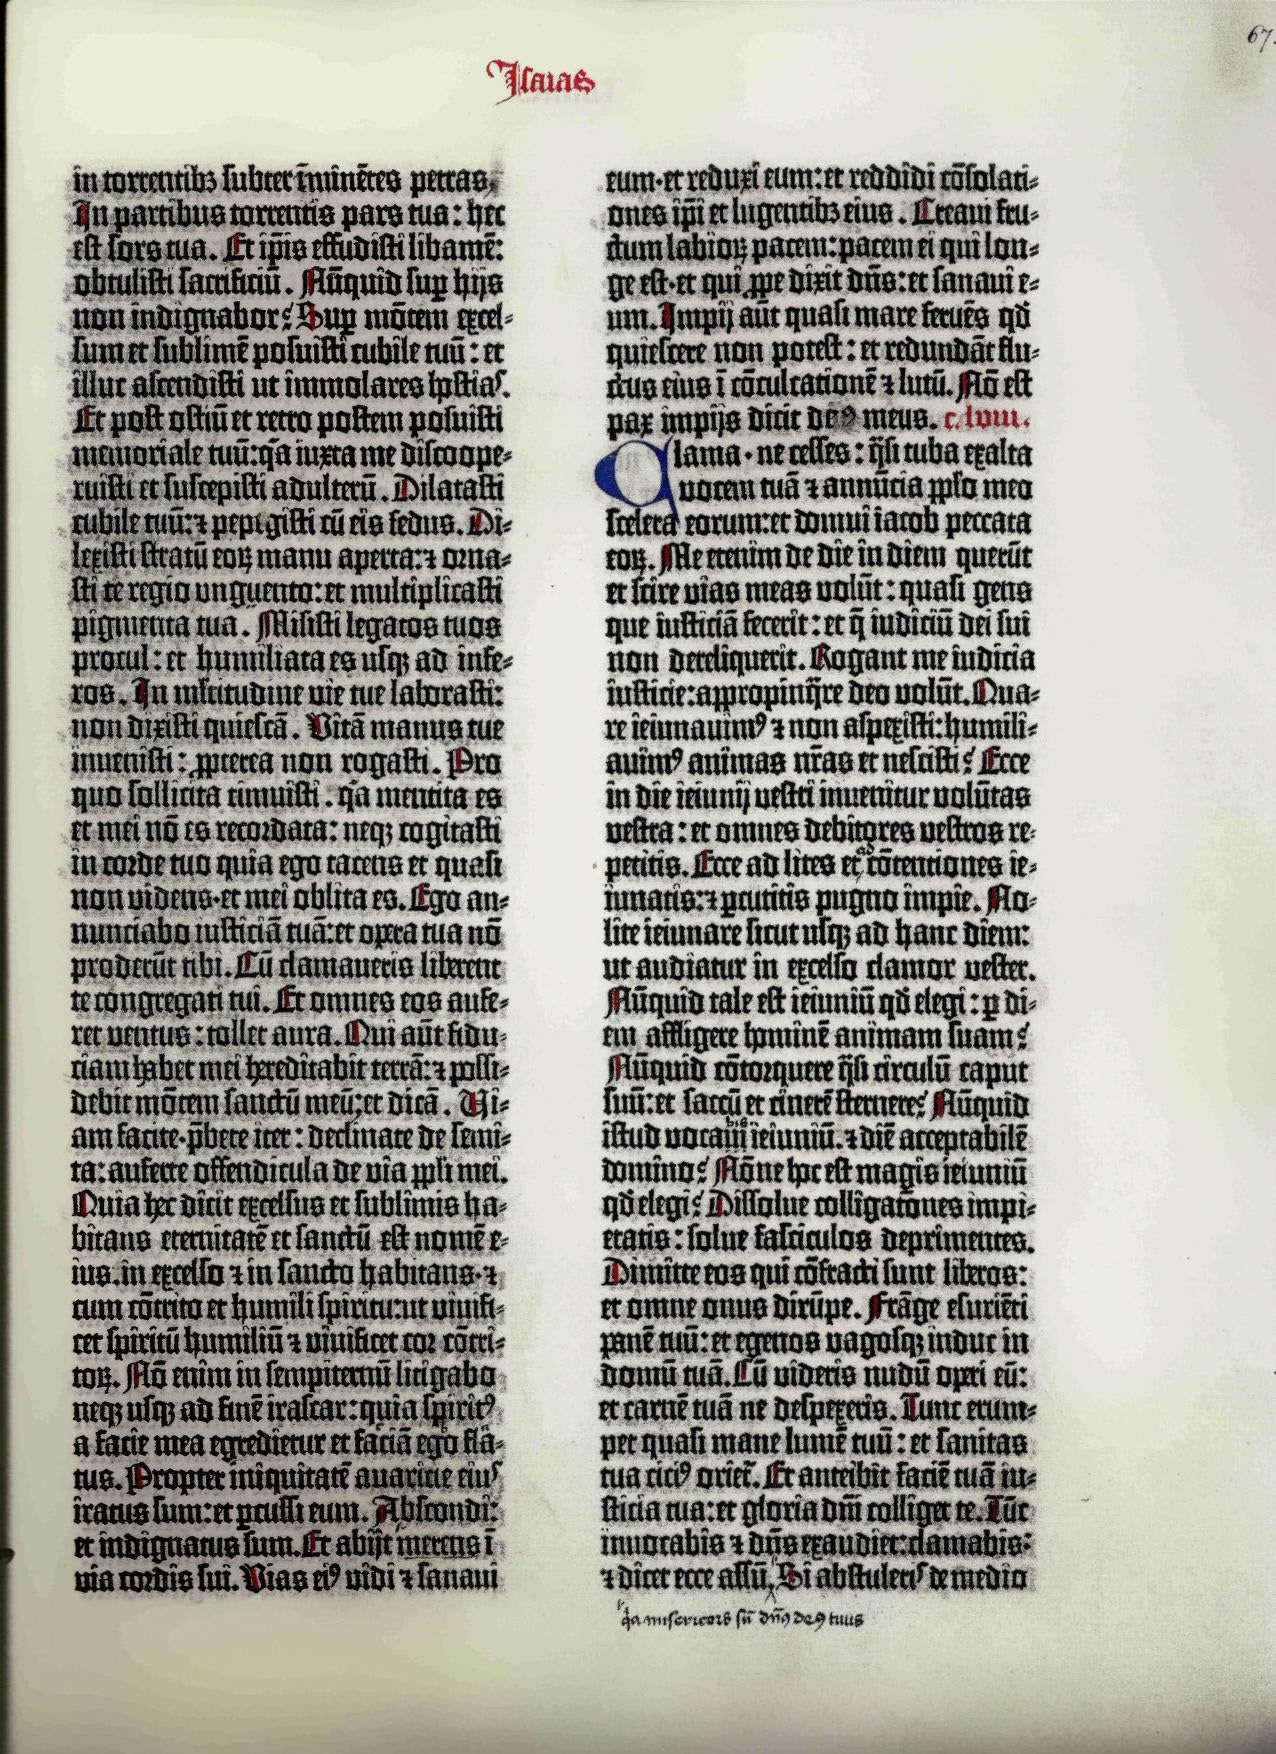 67.
Isaias
in torrentibꝫ subter īminētes petras,
In partibus torrentis pars tua: hec
est sors tua. Et ip̄is effudisti libamē:
obtulisti sacrificiū. Nūquid suꝑ hijs
non indignabor? Suꝑ mōtem excel-
sum et sublimē posuisti cubile tuū: et
illuc ascendisti ut immolares hostias.
Et post ostiū et retro postem posuisti
memoriale tuū: q̄a iuxta me discoope-
ruisti et suscepisti adulterū. Dilatasti
cubile tuū: ⁊ pepigisti cū eis fedus. Di-
lexisti stratū eoꝝ manu aperta: ⁊ orna-
sti te regio vnguento: et multiplicasti
pigmenta tua. Misisti legatos tuos
procul: et humiliata es usqꝫ ad infe-
ros. In ml̄titudine vie tue laborasti:
non dixisti quiescā. Vitā manus tue
inuenisti: ꝓpterea non rogasti. Pro
quo sollicita timuisti. q̄a mentita es
et mei nō es recordata: neqꝫ cogitasti
in corde tuo quia ego tacens et quasi
non videns·et mei oblita es. Ego an-
nunciabo iusticiā tuā: et opera tua nō
proderūt tibi. Cū clamaueris liberent
te congregati tui. Et omnes eos aufe-
ret ventus: tollet aura. Qui aūt fidu-
ciam habet mei hereditabit terrā: ⁊ possi-
debit mōtem sanctū meū: et dicā. Vi-
am facite·p̄bete iter: declinate de semi-
ta: auferte offendicula de via ppl̄i mei.
Quia hec dicit excelsus et sublimis ha-
bitans eternitatē et sanctū est nomē e-
ius. in excelso ⁊ in sancto habitans·⁊
cum cōtrito et humili spiritu: ut viuifi-
cet spiritū humiliū ⁊ viuificet cor cōtri-
toꝝ. Nō enim in sempiternū litigabo
neqꝫ usqꝫ ad finē irascar: quia spiritꝰ
a facie mea egredietur et faciā ego fla-
tus. Propter iniquitatē auaricie eius
iratus sum: et ꝑcussi eum. Abscondi:
et indignatus sum. Et abijt merens ī
via cordis sui. Vias eiꝰ vidi ⁊ sanaui
eum·et reduxi eum: et reddidi cōsolati-
ones ip̄i et lugentibꝫ eius. Creaui fru-
ctum labioꝝ pacem: pacem ei qui lon-
ge est·et qui ꝓpe dixit dn̄s: et sanaui e-
um. Impij aūt quasi mare feruēs qd̄
quiescere non potest: et redundāt flu-
ctus eius ī cōculcationē ⁊ lutū. Nō est
pax impijs dicit deꝰ meus. c. lviii.
Clama·ne cesses: q̄si tuba exalta
vocem tuā ⁊ annūcia ppl̄o meo
scelera eorum: et domui iacob peccata
eoꝝ. Me etenim de die in diem querūt
et scire vias meas volūt: quasi gens
que iusticiā fecerit: et q̄ iudiciū dei sui
non dereliquerit. Rogant me iudicia
iusticie: appropinq̄re deo volūt. Qua-
re ieiunauimꝰ ⁊ non aspexisti: humili-
auimꝰ animas nr̄as et nescisti? Ecce
in die ieiunij vestri inuenitur volūtas
vestra: et omnes debitores vestros re-
petitis. Ecce ad lites et ad cōtentiones ie-
iunatis: ⁊ ꝑcutitis pugno impie. No-
lite ieiunare sicut usqꝫ ad hanc diem:
ut audiatur in excelso clamor vester.
Nūquid tale est ieiuniū qd̄ elegi: ꝑ di-
em affligere hominē animam suam?
Nūquid cōtorquere q̄si circulū caput
suū: et saccū et cinerē sternere? Nūquid
istud vocabis ieiuniū. ⁊ diē acceptabilē
domino? Nōne hoc est magis ieiuniū
qd̄ elegi? Dissolue colligatōnes impi-
etatis: solue fasciculos deprimentes.
Dimitte eos qui cōfracti sunt liberos:
et omne onus dirūpe. Frāge esuriēti
panē tuū: et egenos vagosqꝫ induc in
domū tuā. Cū videris nudū operi eū:
et carnē tuā ne despexeris. Tunc erum-
pet quasi mane lumē tuū: et sanitas
tua citiꝰ oriet̄. Et anteibit faciē tuā iu-
sticia tua: et gloria dn̄i colliget te. Tūc
inuocabis ⁊ dn̄s exaudiet: clamabis:
⁊ dicet ecce assū, Si abstuleris de medio
q̄a misericors sū dn̄s deꝰ tuus